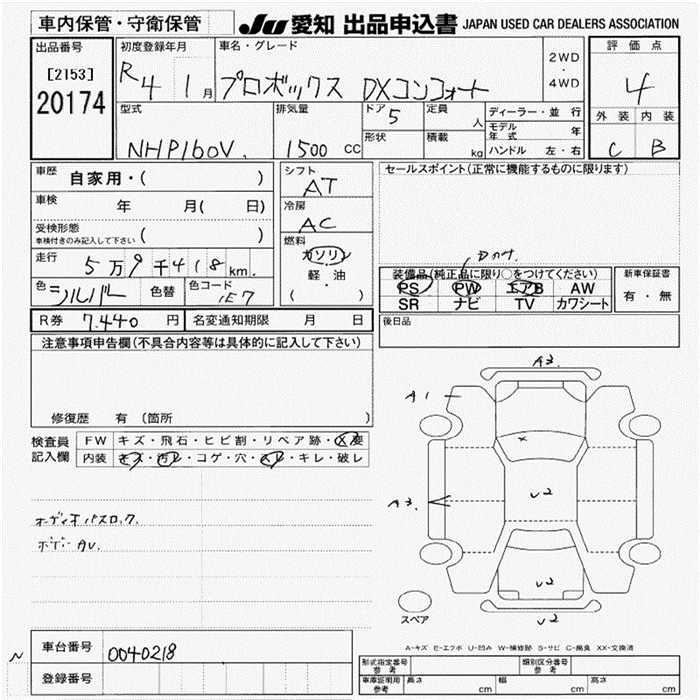 車内保管・守衛保管
JU 愛知 出品申込書 JAPAN USED CAR DEALERS ASSOCIATION
出品番号
[2153]
20174
初度登録年月
R4 1月
車名・グレード
プロボックス DXコンフォート
2WD
・
4WD
評価点
4
外装 内装
C B
型式
NHP160V.
排気量
1500 CC
ドア 5
形状
定員 人
積載 kg
ディーラー・並行
モデル年式 年
ハンドル 左・右
車歴 自家用・( )
車検 年 月( 日)
受検形態
車検付きのみ記入して下さい ( )
走行 5万9千418km.
色 シルバー 色替 色コード 1E7
シフト
AT
冷房
AC
燃料
ガソリン
軽・油
( )
セールスポイント(正常に機能するものに限ります)
装備品(純正品に限り○をつけてください)
PS PW エアB AW
SR ナビ TV カワシート
新車保証書
有・無
R券 7.440円 名変通知期限 月 日
後日品
注意事項申告欄(不具合内容等は具体的に記入して下さい)
修復歴 有 (箇所 )
検査員
記入欄
FW キズ・飛石・ヒビ割・リペア跡・X要
内装 キズ・汚レ・コゲ・穴・スレ・キレ・破レ
オーディオパスロック.
ボデーAU.
A3.
A1
A3.
U2
U2
U2
スペア
A-キズ E-エクボ U-凹み W-補修跡 S-サビ C-腐臭 XX-交換済
N
車台番号 0040218
登録番号
形式指定番号
参考
類別区分番号
参考
車庫証明用
参考
長さ cm 幅 cm 高さ cm